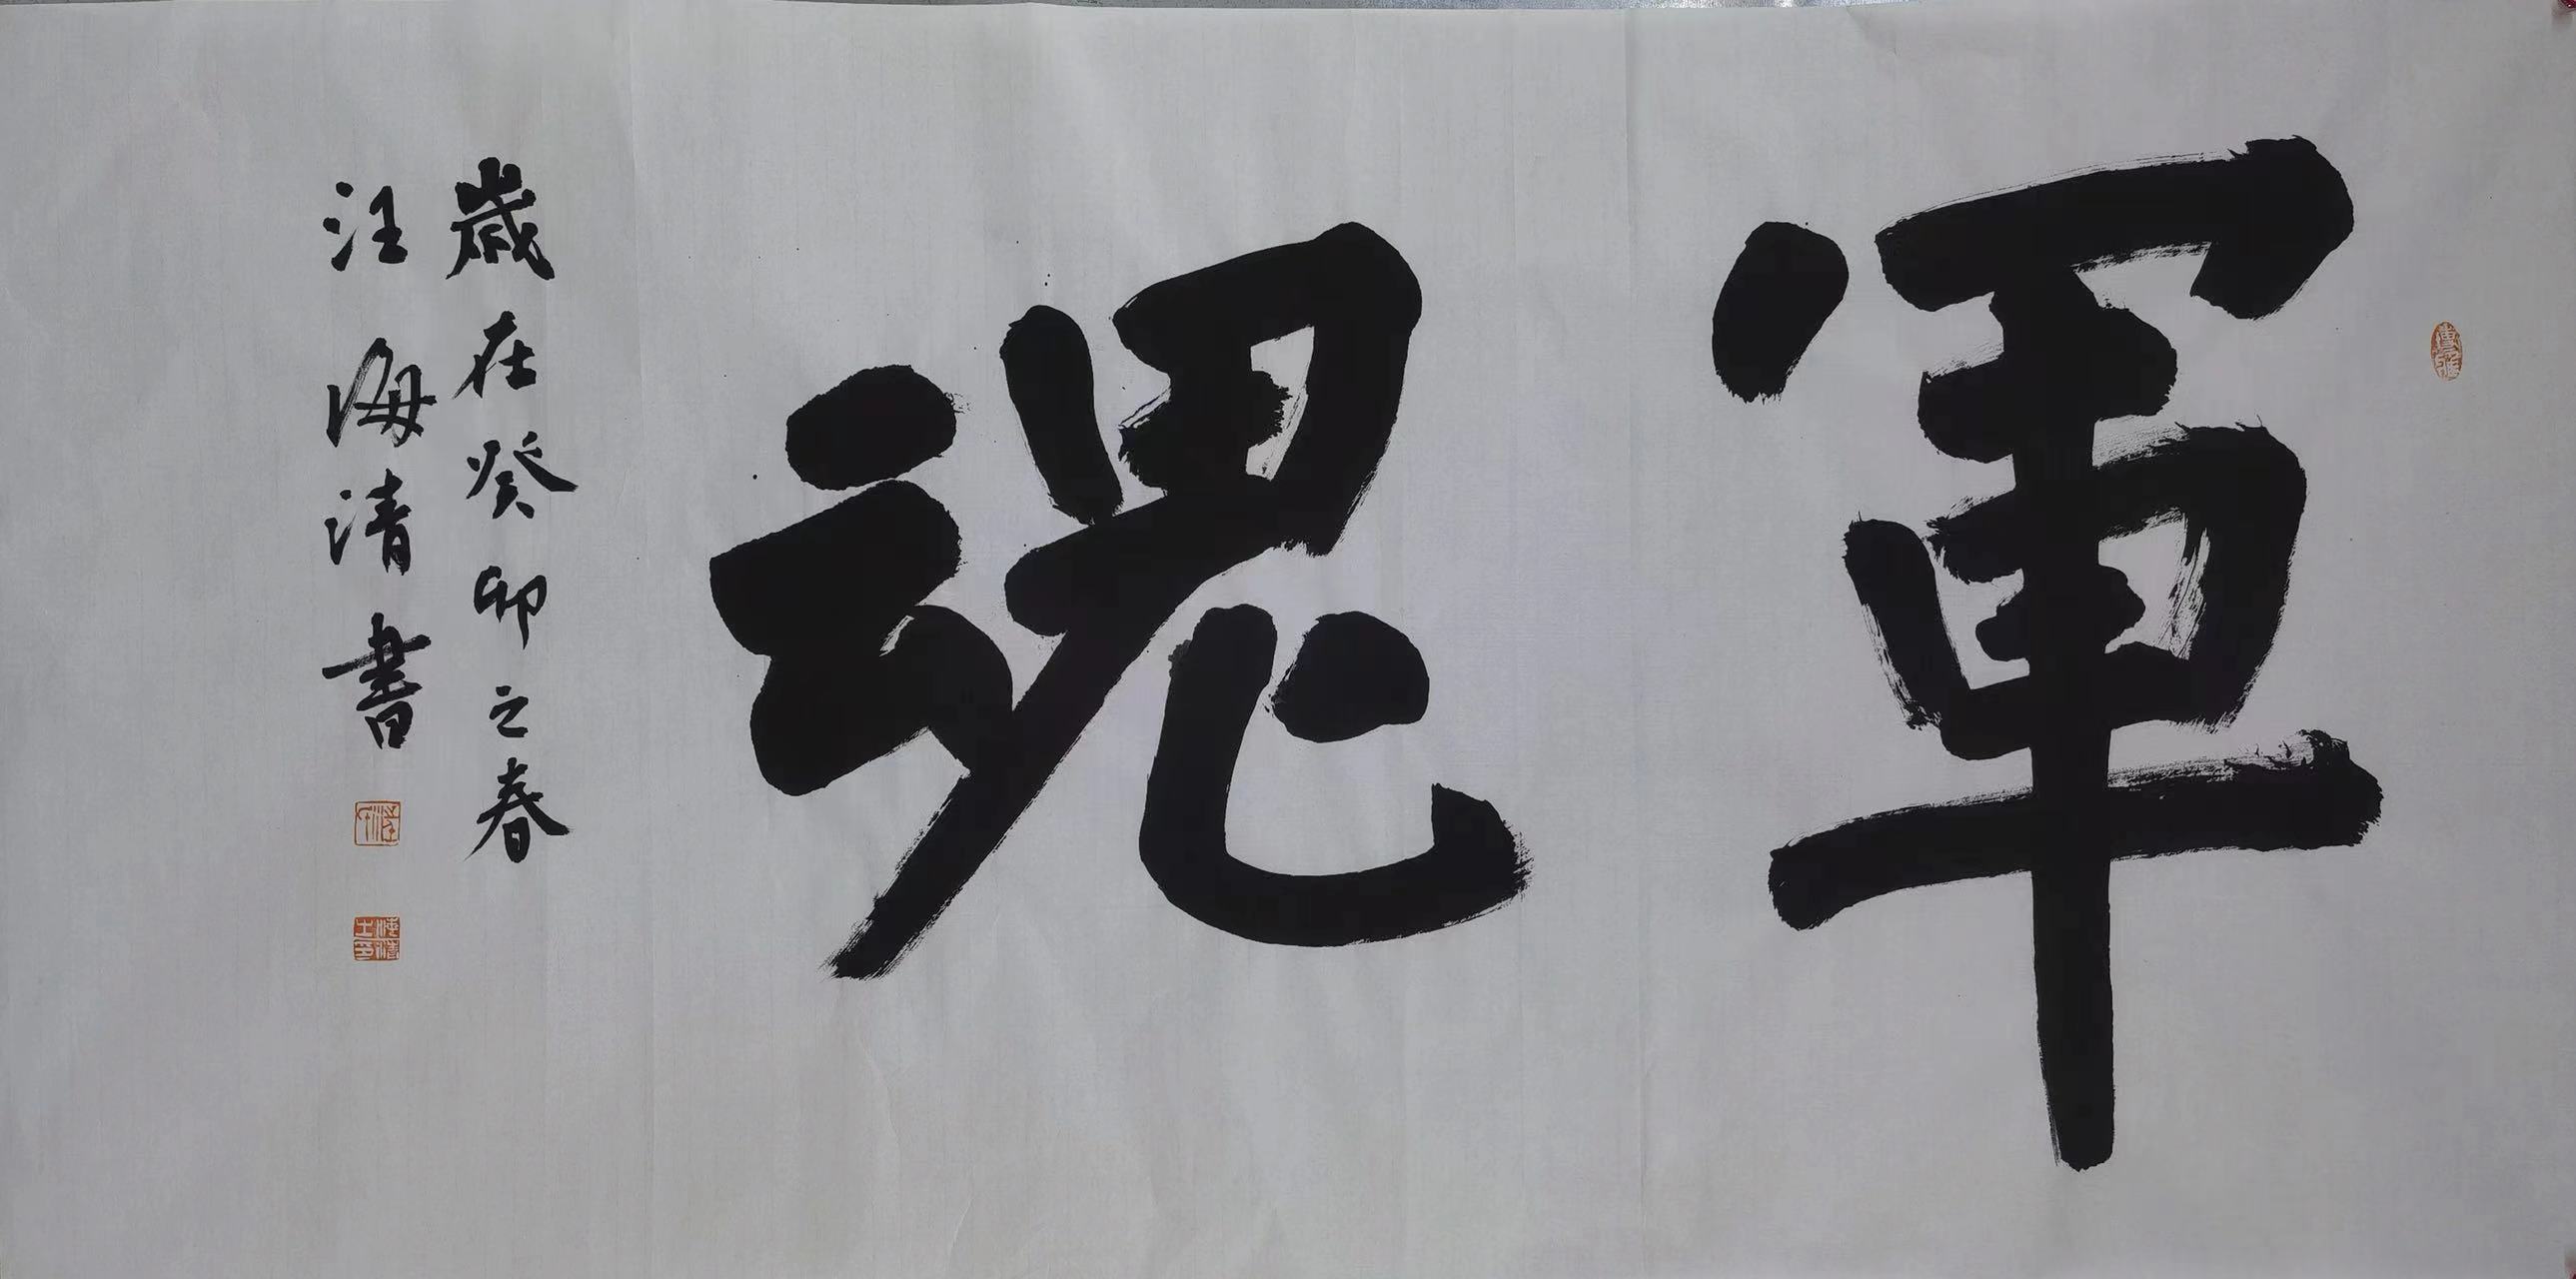 軍魂
歲在癸卯之春
汪海清書